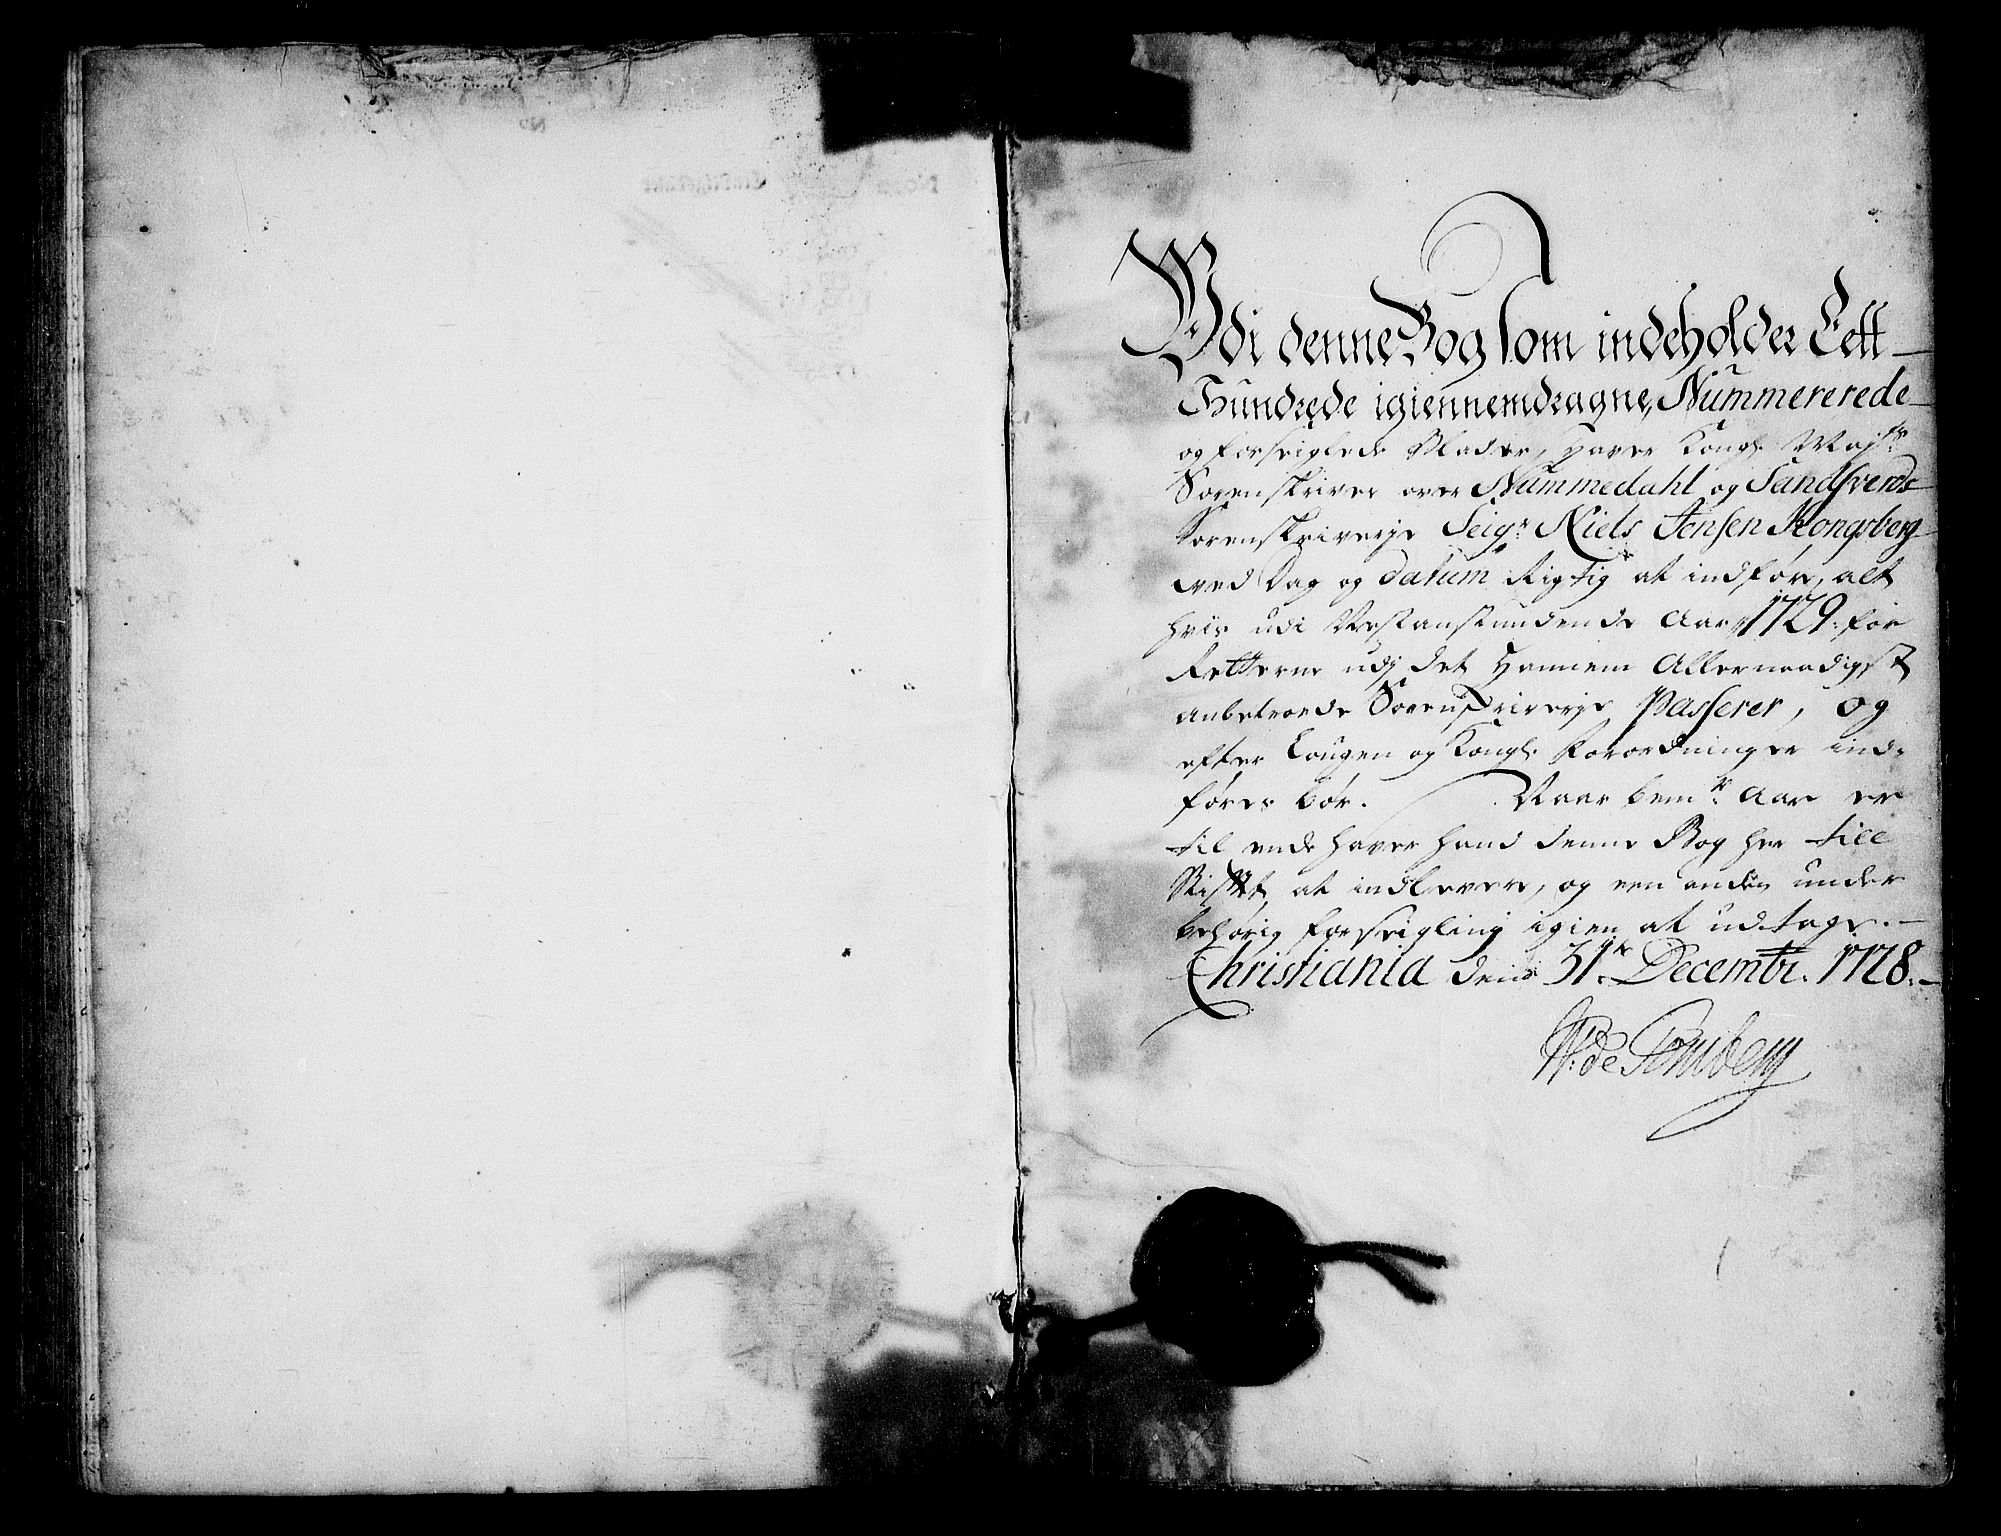 Udi denne Bog som indeholder Eett
Hundrede igiennemdragne, Nummererede
og forseiglede Blader, haver Kongl. Mayts
Sorenskriver over Nummedahl og Sandsverds
Sorenskriverie Seigr Niels Jensen Kongsberg
ved Dag og datum Rigtig at indføre, alt
hvis udi Nestanstundende Aar 1729: for
Retterne udj det hannem Allernaadigst
anbetroede Sorenskriverie Passerer, og
efter Lougen og Kongl. Forordninger ind-
føres bør. Naar bemte Aar er
til ende haver hand denne Bog her till
Stiftet at indlevere, og een anden under
behørig forseigling igien at udtage.
Christiania den 31te Decembr. 1728.
W: de Tonsberg